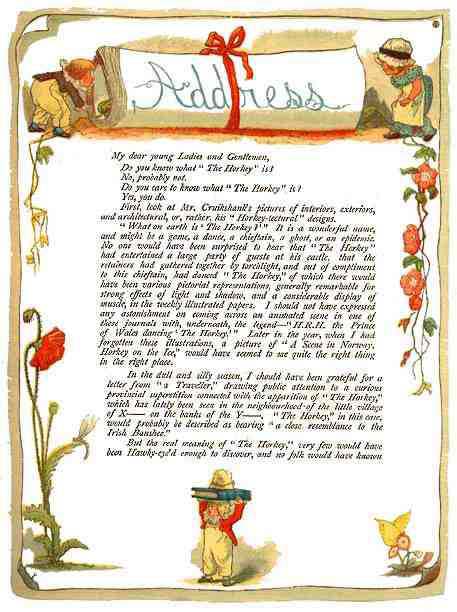 Address
My dear young Ladies and Gentlemen,
Do you know what "The Horkey" is?
No, probably not.
Do you care to know what "The Horkey" is?
Yes, you do.
First, look at Mr. Cruikshank's pictures of interiors, exteriors,
and architectural, or, rather, his "Horkey-tectural" designs.
"What on earth is 'The Horkey?'" It is a wonderful name,
and might be a game, a dance, a chieftain, a ghost, or an epidemic.
No one would have been surprised to hear that "The Horkey"
had entertained a large party of guests at his castle, that the
retainers had gathered together by torchlight, and out of compliment
to this chieftain, had danced "The Horkey," of which there would
have been various pictorial representations, generally remarkable for
strong effects of light and shadow, and a considerable display of
muscle, in the weekly illustrated papers. I should not have expressed
any astonishment on coming across an animated scene in one of
these journals with, underneath, the legend—"H.R.H. the Prince
of Wales dancing 'The Horkey.'" Later in the year, when I had
forgotten these illustrations, a picture of "A Scene in Norway,
Horkey on the Ice," would have seemed to me quite the right thing
in the right place.
In the dull and silly season, I should have been grateful for a
letter from "a Traveller," drawing public attention to a curious
provincial superstition connected with the apparition of "The Horkey,"
which has lately been seen in the neighbourhood of the little village
of X—— on the banks of the Y——. "The Horkey," in this case,
would probably be described as bearing "a close resemblance to the
Irish Banshee."
But the real meaning of "The Horkey," very few would have
been Hawky-ey'd enough to discover, and no folk would have known